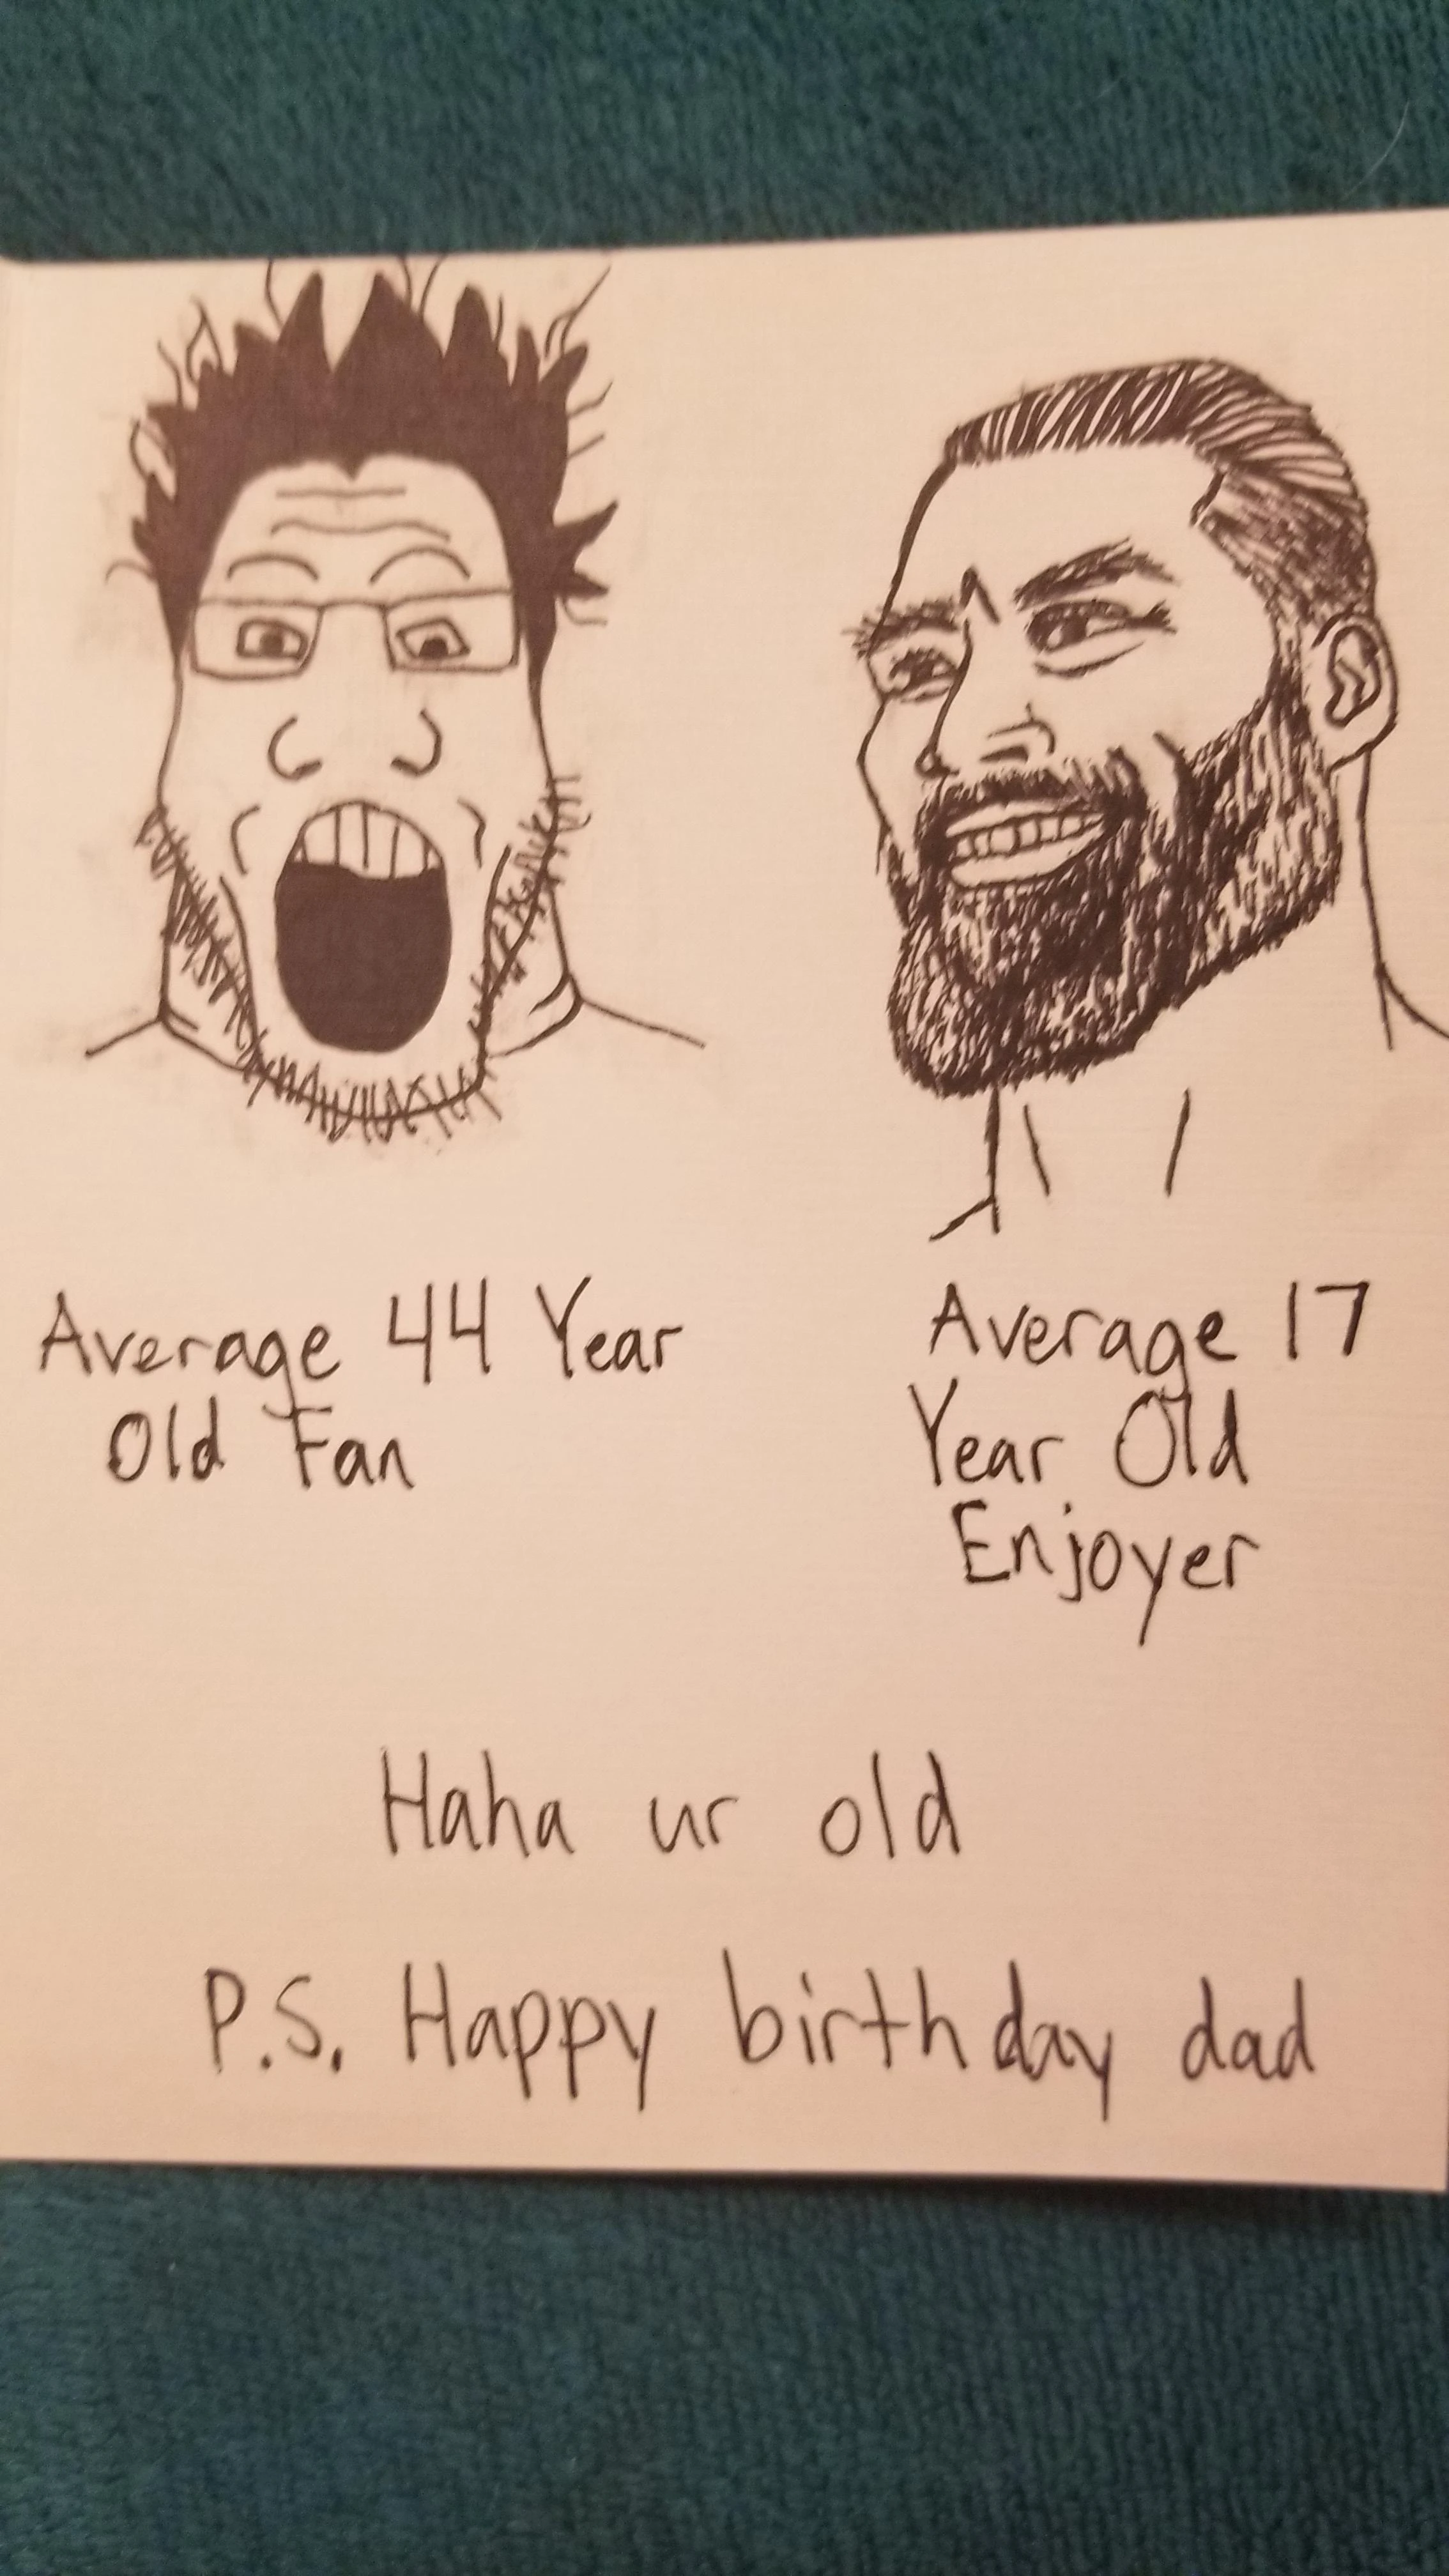 Average 44 Year
Old Fan
Average 17
Year Old
Enjoyer
Haha ur old
P.S. Happy birthday dad